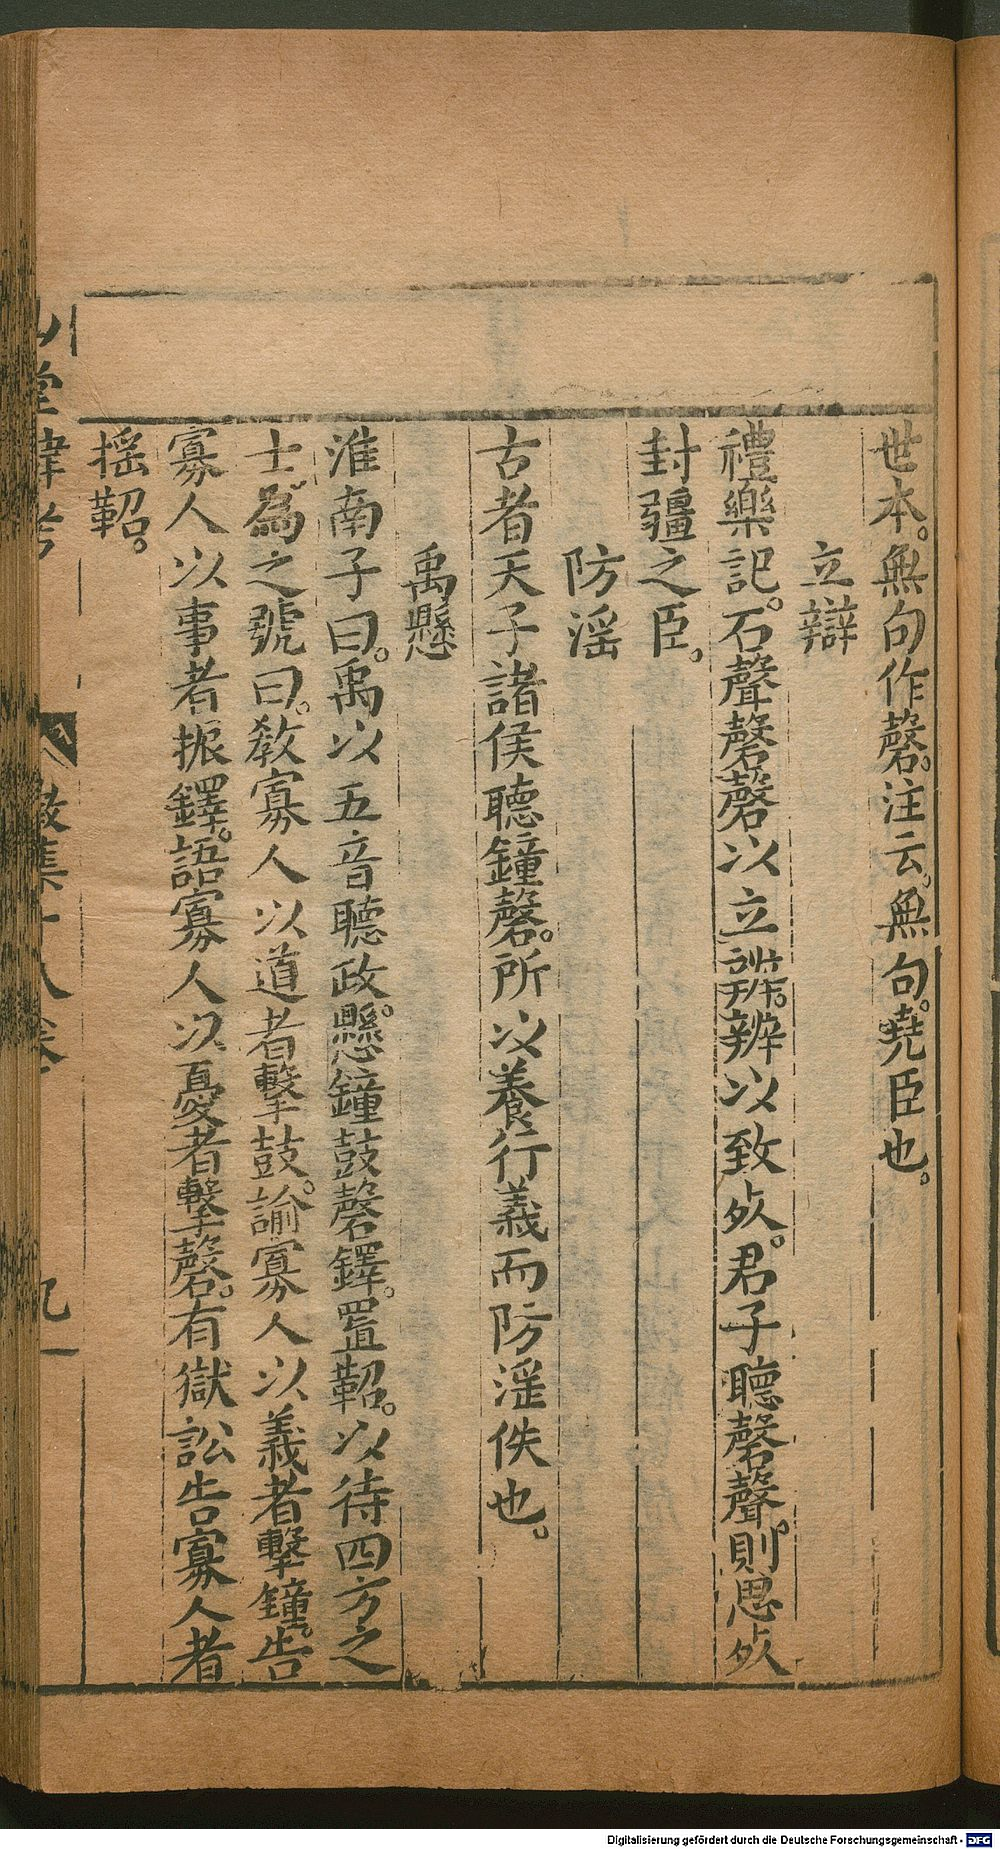 世本。無句作磬。注云。無句。堯臣也。
立辯
禮樂記。石聲磬磬以立辨。辨以致死。君子聽磬聲。則思死
封疆之臣。
防淫
古者天子諸侯聽鐘磬。所以養行義而防淫佚也。
禹懸
淮南子曰。禹以五音聽政。懸鐘鼓磬鐸。置鞀。以待四方之
士。為之號曰。教寡人以道者擊鼓。諭寡人以義者擊鐘。告
寡人以事者振鐸。語寡人以憂者擊磬。有獄訟告寡人者
搖鞀。
堂肆考
徵集十八卷
九
Digitalisierung gefördert durch die Deutsche Forschungsgemeinschaft - DFG